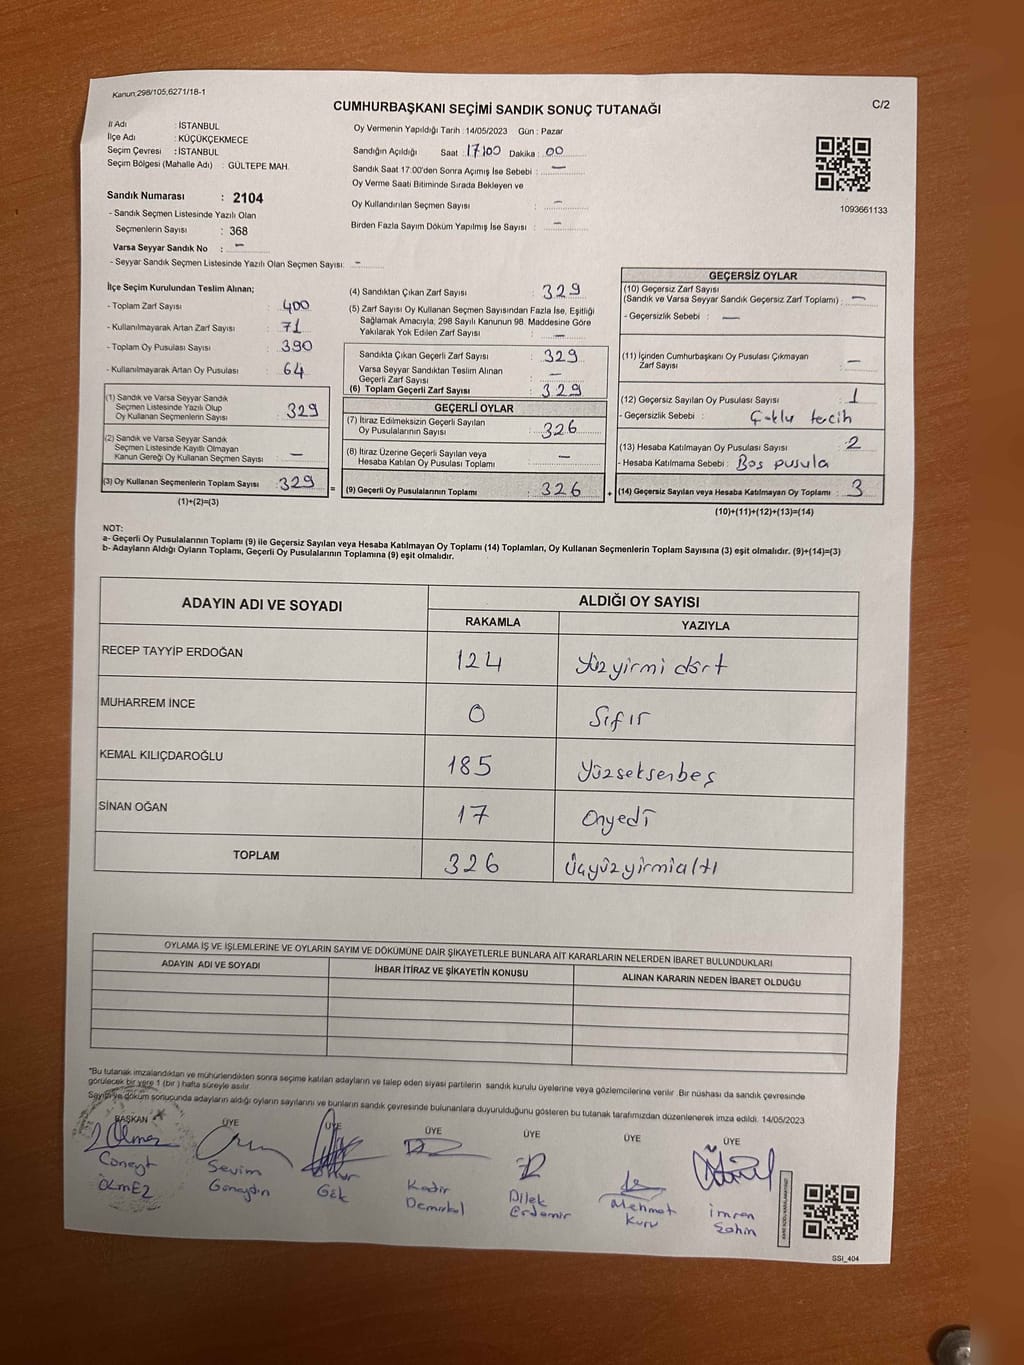 Kanun,298/105,6271/18-1
CUMHURBAŞKANI SEÇİMİ SANDIK SONUÇ TUTANAĞI
C/2
İl Adı : İSTANBUL
İlçe Adı : KÜÇÜKÇEKMECE
Seçim Çevresi : İSTANBUL
Seçim Bölgesi (Mahalle Adı) : GÜLTEPE MAH.
Sandık Numarası : 2104
- Sandık Seçmen Listesinde Yazılı Olan
Seçmenlerin Sayısı : 368
Varsa Seyyar Sandık No : -
- Seyyar Sandık Seçmen Listesinde Yazılı Olan Seçmen Sayısı: -
Oy Vermenin Yapıldığı Tarih : 14/05/2023 Gün : Pazar
Sandığın Açıldığı Saat : 17:00 Dakika : 00
Sandık Saat 17:00'den Sonra Açımış İse Sebebi : -
Oy Verme Saati Bitiminde Sırada Bekleyen ve
Oy Kullandırılan Seçmen Sayısı : -
Birden Fazla Sayım Döküm Yapılmış İse Sayısı : -
1093661133
İlçe Seçim Kurulundan Teslim Alınan;
- Toplam Zarf Sayısı : 400
- Kullanılmayarak Artan Zarf Sayısı : 71
- Toplam Oy Pusulası Sayısı : 390
- Kullanılmayarak Artan Oy Pusulası : 64
(1) Sandık ve Varsa Seyyar Sandık
Seçmen Listesinde Yazılı Olup
Oy Kullanan Seçmenlerin Sayısı : 329
(2) Sandık ve Varsa Seyyar Sandık
Seçmen Listesinde Kayıtlı Olmayan
Kanun Gereği Oy Kullanan Seçmen Sayısı : -
(3) Oy Kullanan Seçmenlerin Toplam Sayısı : 329
(1)+(2)=(3)
=
(4) Sandıktan Çıkan Zarf Sayısı : 329
(5) Zarf Sayısı Oy Kullanan Seçmen Sayısından Fazla İse, Eşitliği
Sağlamak Amacıyla, 298 Sayılı Kanunun 98. Maddesine Göre
Yakılarak Yok Edilen Zarf Sayısı : -
Sandıkta Çıkan Geçerli Zarf Sayısı : 329
Varsa Seyyar Sandıktan Teslim Alınan
Geçerli Zarf Sayısı : -
(6) Toplam Geçerli Zarf Sayısı : 329
GEÇERLİ OYLAR
(7) İtiraz Edilmeksizin Geçerli Sayılan
Oy Pusulalarının Sayısı : 326
(8) İtiraz Üzerine Geçerli Sayılan veya
Hesaba Katılan Oy Pusulası Toplamı : -
(9) Geçerli Oy Pusulalarının Toplamı : 326
+
GEÇERSİZ OYLAR
(10) Geçersiz Zarf Sayısı
(Sandık ve Varsa Seyyar Sandık Geçersiz Zarf Toplamı) : -
- Geçersizlik Sebebi : -
(11) İçinden Cumhurbaşkanı Oy Pusulası Çıkmayan
Zarf Sayısı : -
(12) Geçersiz Sayılan Oy Pusulası Sayısı : 1
- Geçersizlik Sebebi : Çoklu tercih
(13) Hesaba Katılmayan Oy Pusulası Sayısı : 2
- Hesaba Katılmama Sebebi : Boş pusula
(14) Geçersiz Sayılan veya Hesaba Katılmayan Oy Toplamı : 3
(10)+(11)+(12)+(13)=(14)
NOT:
a- Geçerli Oy Pusulalarının Toplamı (9) ile Geçersiz Sayılan veya Hesaba Katılmayan Oy Toplamı (14) Toplamları, Oy Kullanan Seçmenlerin Toplam Sayısına (3) eşit olmalıdır. (9)+(14)=(3)
b- Adayların Aldığı Oyların Toplamı, Geçerli Oy Pusulalarının Toplamına (9) eşit olmalıdır.
ADAYIN ADI VE SOYADI
ALDIĞI OY SAYISI
RAKAMLA YAZIYLA
RECEP TAYYİP ERDOĞAN 124 Yüzyirmi dört
MUHARREM İNCE 0 Sıfır
KEMAL KILIÇDAROĞLU 185 Yüzseksenbeş
SİNAN OĞAN 17 Onyedi
TOPLAM 326 Üçyüzyirmialtı
OYLAMA İŞ VE İŞLEMLERİNE VE OYLARIN SAYIM VE DÖKÜMÜNE DAİR ŞİKAYETLERLE BUNLARA AİT KARARLARIN NELERDEN İBARET BULUNDUKLARI
ADAYIN ADI VE SOYADI İHBAR İTİRAZ VE ŞİKAYETİN KONUSU ALINAN KARARIN NEDEN İBARET OLDUĞU
"Bu tutanak imzalandıktan ve mühürlendikten sonra seçime katılan adayların ve talep eden siyasi partilerin sandık kurulu üyelerine veya gözlemcilerine verilir. Bir nüshası da sandık çevresinde
görülecek bir yere 1 (bir) hafta süreyle asılır.
Sayım ve döküm sonucunda adayların aldığı oyların sayılarını ve bunların sandık çevresinde bulunanlara duyurulduğunu gösteren bu tutanak tarafımızdan düzenlenerek imza edildi. 14/05/2023
BAŞKAN ÜYE ÜYE ÜYE ÜYE ÜYE ÜYE
Cüneyt Sevim Onur Kadir Dilek Mehmet İmren
ÖLMEZ Günaydın Gök Demirkol Erdemir Kuru Şahin
SSİ_404